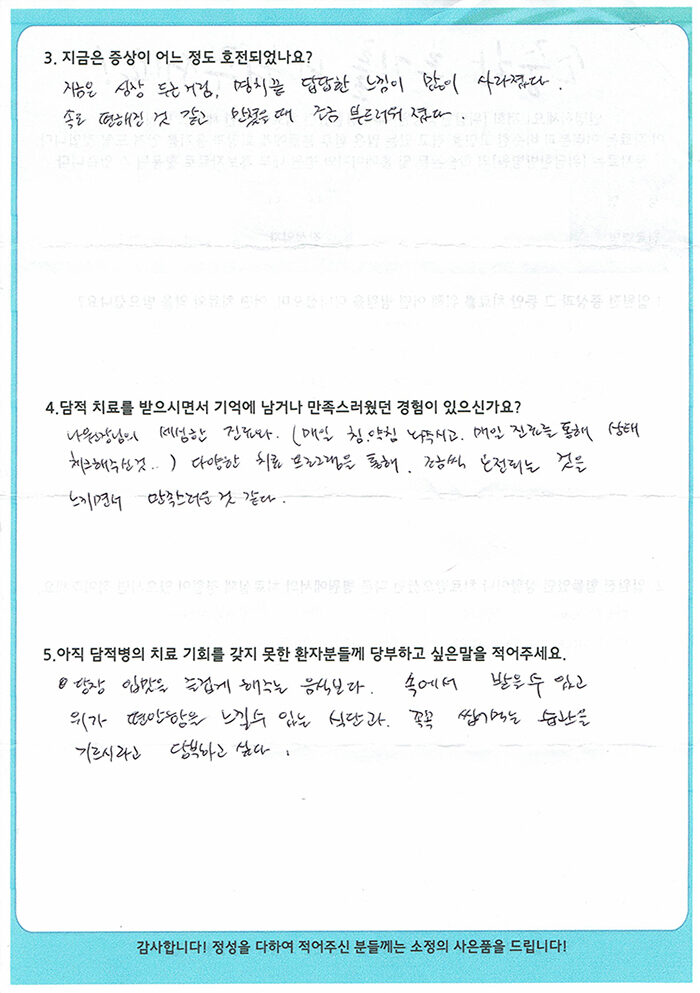 3. 지금은 증상이 어느 정도 호전되었나요?
지금은 심장 두근거림, 명치끝 답답한 느낌이 많이 사라졌다.
속도 편해진 것 같고 만졌을때 조금 부드러워 졌다.
4.담적 치료를 받으시면서 기억에 남거나 만족스러웠던 경험이 있으신가요?
나원장님의 세심한 진료와. (매일 침.약침 놔주시고. 매일 진료를 통해 상태
체크해주신것..) 다양한 치료 프로그램을 통해. 조금씩 호전되는 것을
느끼면서 만족스러운 것 같다.
5.아직 담적병의 치료 기회를 갖지 못한 환자분들께 당부하고 싶은말을 적어주세요.
당장 입맛을 즐겁게 해주는 음식보다. 속에서 받을수 있고
위가 편안함을 느낄수 있는 식단과. 꼭꼭 씹어먹는 습관을
기르시라고 당부하고 싶다.
감사합니다! 정성을 다하여 적어주신 분들께는 소정의 사은품을 드립니다!